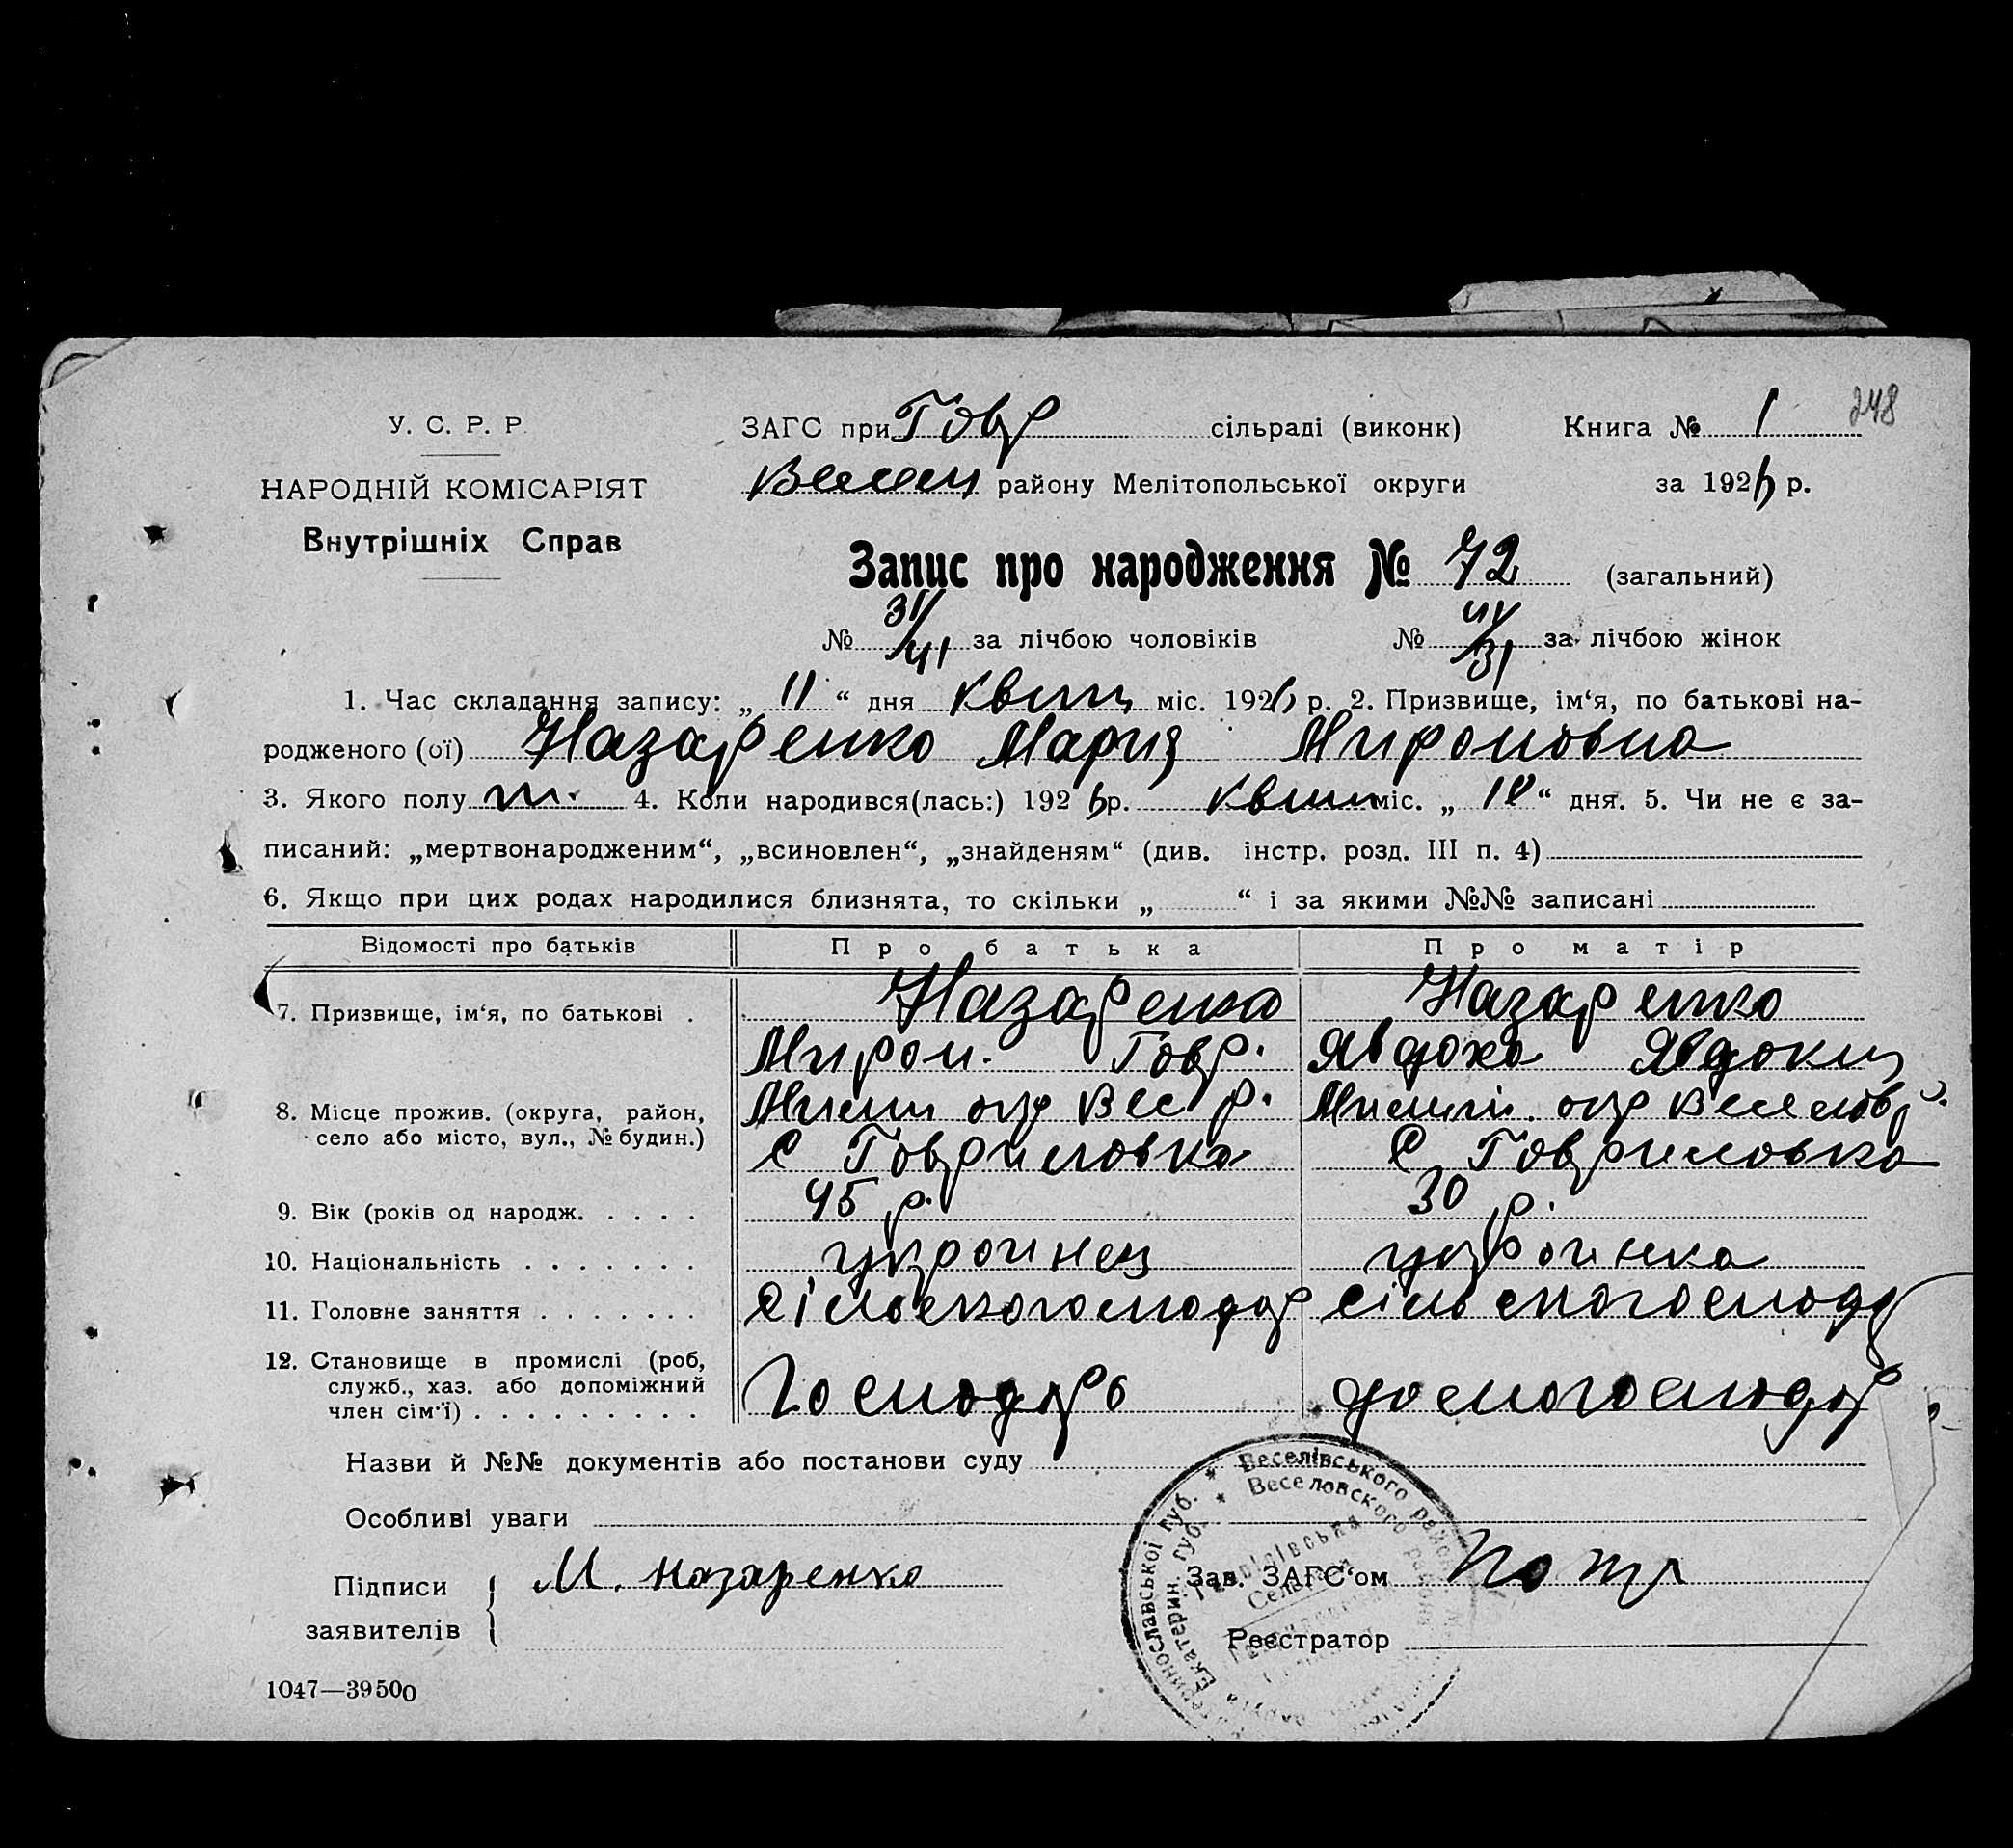 248
У. С. Р. Р.
ЗАГС при Гавр сільраді (виконк) Книга № 1
НАРОДНІЙ КОМІСАРІЯТ
району Мелітопольської округи за 1926 р.
Внутрішніх Справ
Запис про народження № 72 (загальний)
№ 31/41 за лічбою чоловіків № 41/31 за лічбою жінок
1. Час складання запису: „ 11 “ дня міс. 1926 р. 2. Призвище, ім‘я, по батькові на-
родженого (ої) Назаренко Мария Мироновна
3. Якого полу 4. Коли народився(лась:) 1926 р. міс. „ “ дня. 5. Чи не є за-
писаний: „мертвонародженим“, „всиновлен“, „знайденям“ (див. інстр. розд. III п. 4)
6. Якщо при цих родах народилися близнята, то скільки „ “ і за якими №№ записані
Відомості про батьків Про батька Про матір
7. Призвище, ім‘я, по батькові . Назаренко Назаренко
Мирон. Гавр. Явдоха Явдоким
8. Місце прожив. (округа, район, окр Вес р. окр Веселов р.
село або місто, вул., № будин.) С Гавриловка С Гавриловка
9. Вік (років од народж. . . . . 45 р. 30 р.
10. Національність . . . . . . . украинец украинка
11. Головне заняття . . . . . . . сільськогосподар сільськогосподар
12. Становище в промислі (роб,
служб., хаз. або допоміжний господарь
член сім‘ї) . . . . . . . . .
Назви й №№ документів або постанови суду
Особливі уваги
Підписи М. Назаренко Зав. ЗАГС‘ом
заявителів Реєстратор
1047—39500
Веселівського
Веселовского